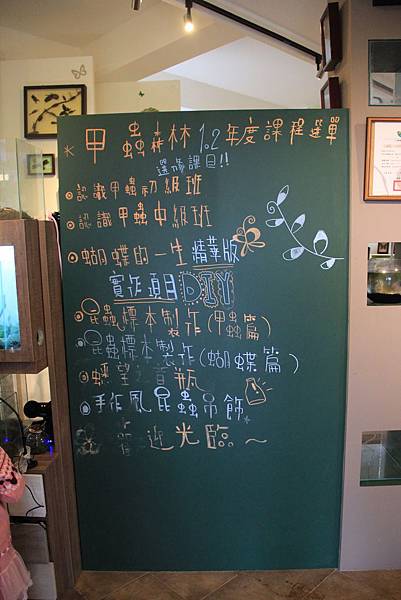 * 甲蟲森林 1.2年度課程選單
選修課目!!
認識甲蟲初級班
認識甲蟲中級班
蝴蝶的一生 精華版
實作項目 DIY
昆蟲標本製作(甲蟲篇)
昆蟲標本製作(蝴蝶篇)
手作風昆蟲吊飾
迎光臨~